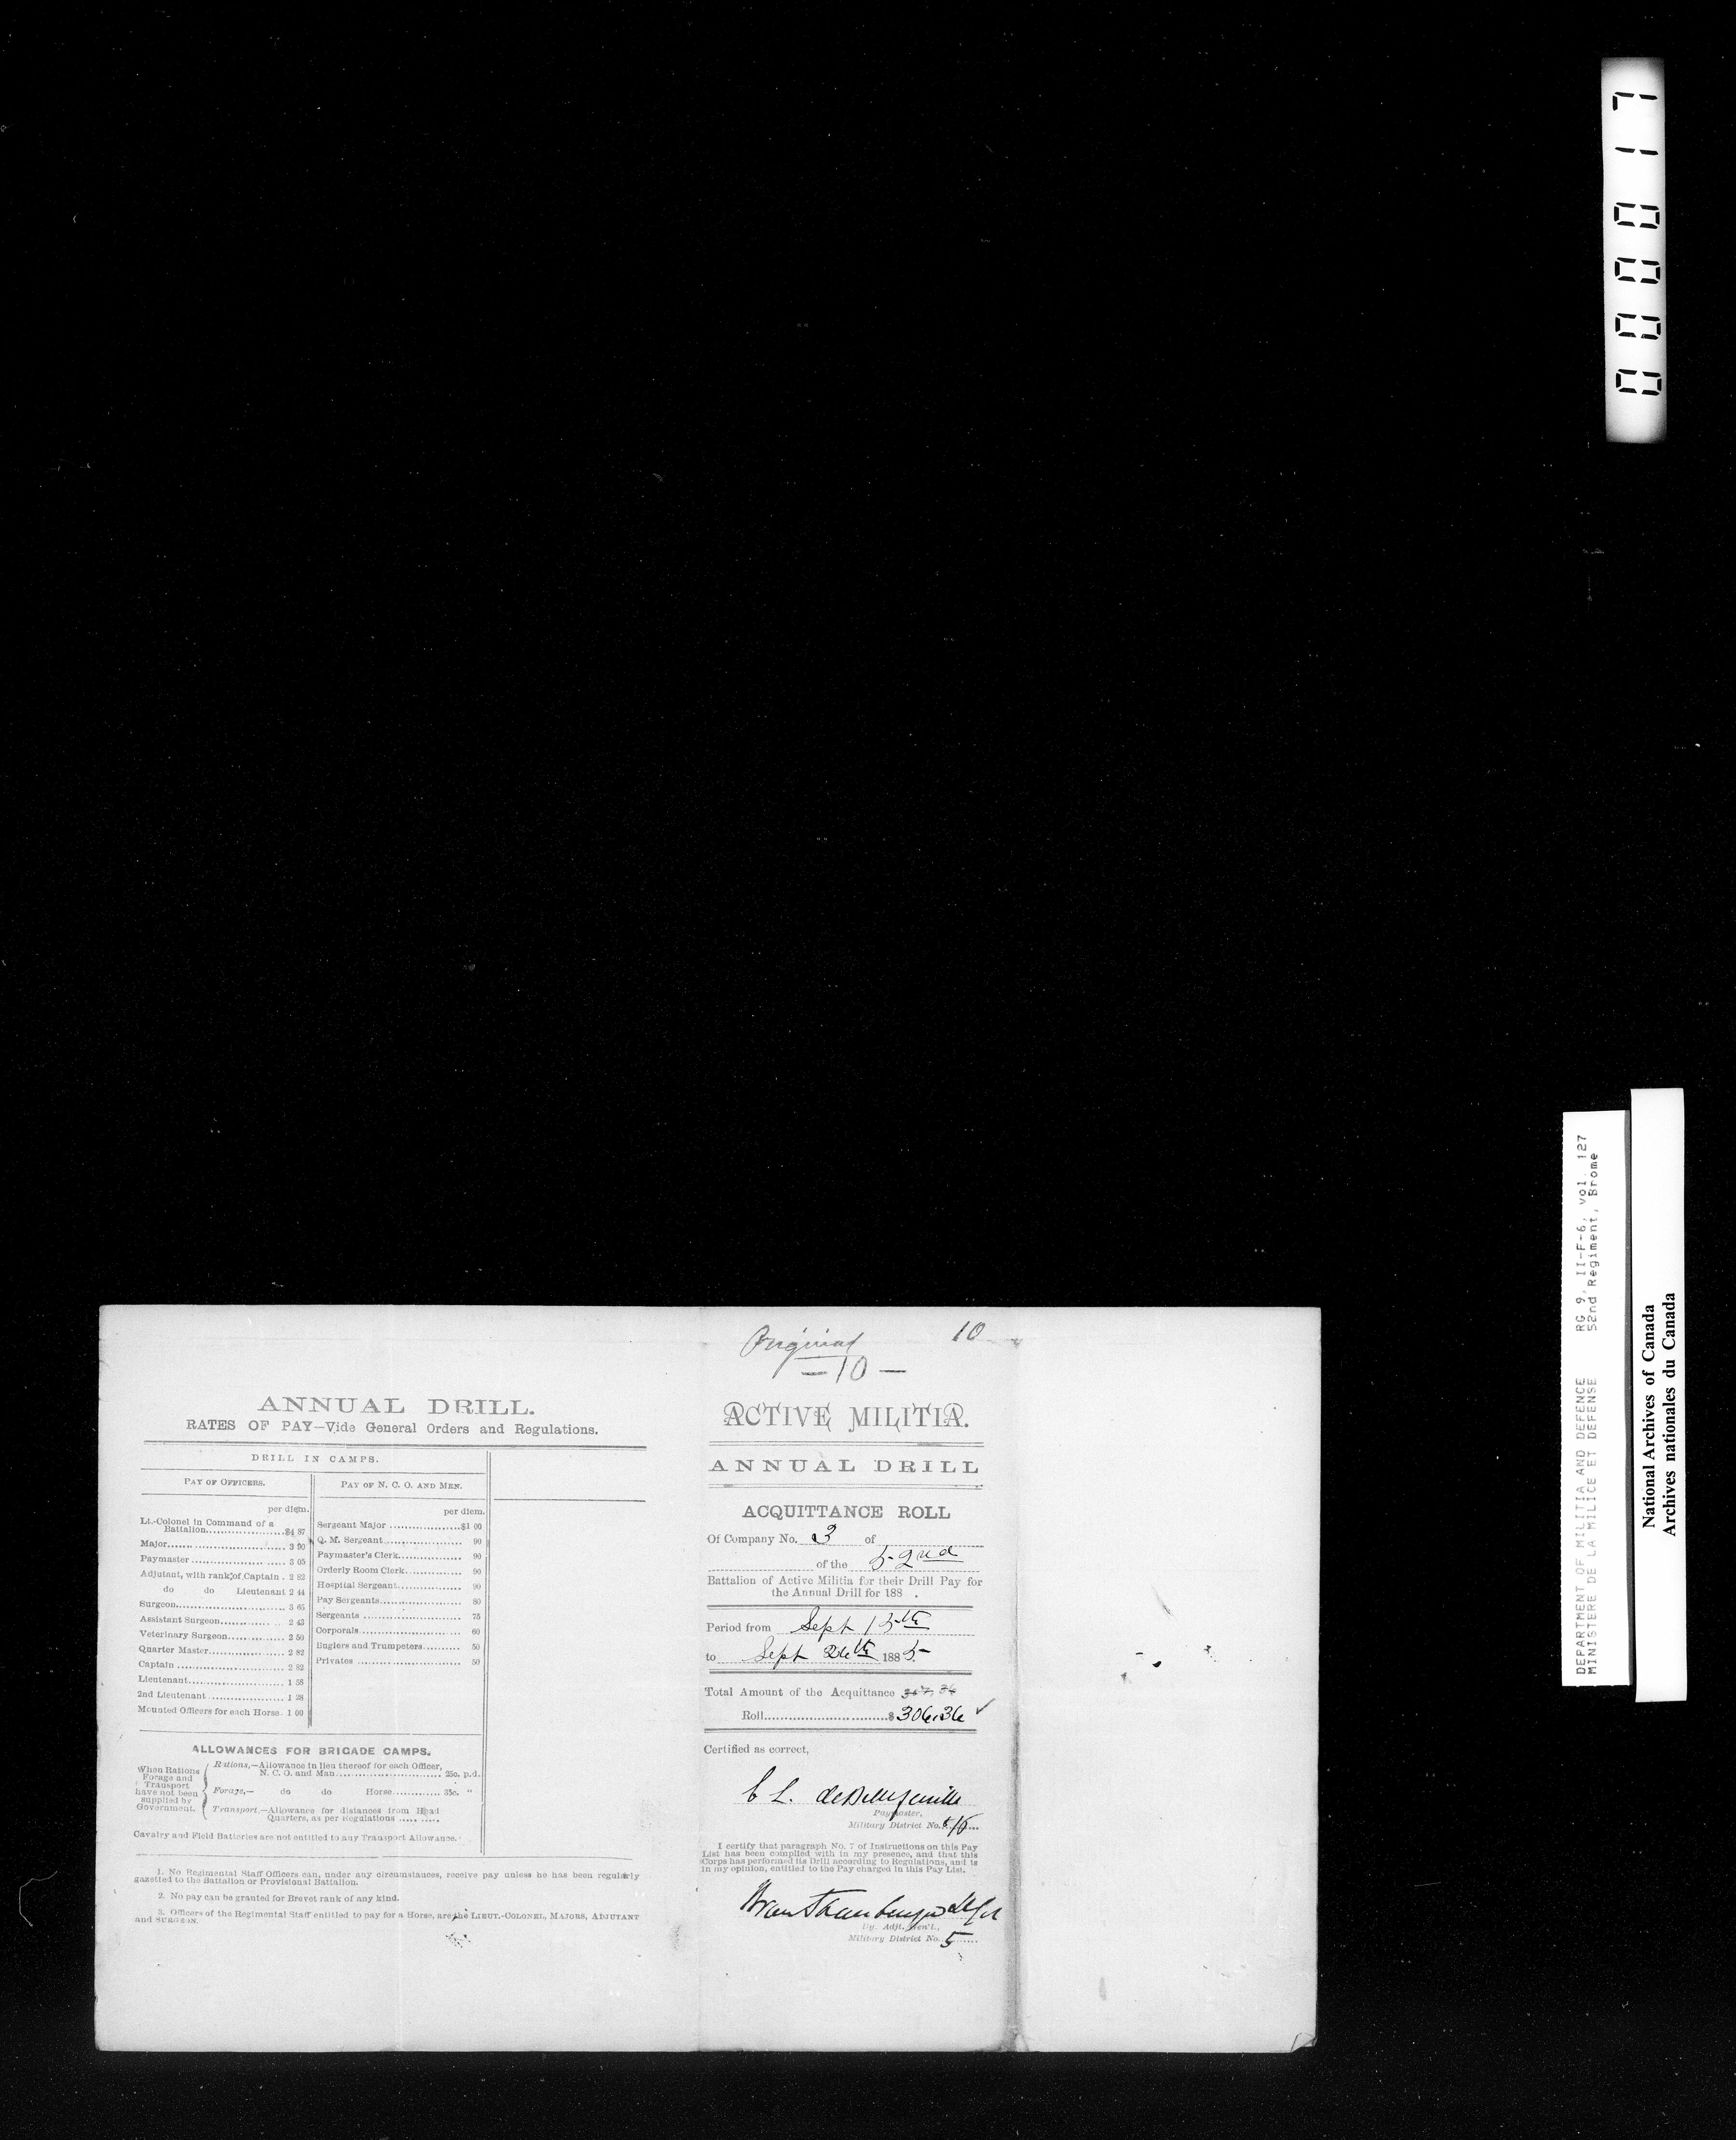 000017
DEPARTMENT OF MILITIA AND DEFENCE RG 9, II-F-6, vol. 127
MINISTERE DE LA MILICE ET DEFENSE 52nd Regiment, Brome
National Archives of Canada
Archives nationales du Canada
ANNUAL DRILL.
RATES OF PAY—Vide General Orders and Regulations.
DRILL IN CAMPS.
PAY OF OFFICERS.
per diem.
Lt.-Colonel in Command of a
Battalion.......................$4 87
Major.................................. 3 90
Paymaster ........................... 3 05
Adjutant, with rank of Captain . 2 82
do do Lieutenant 2 44
Surgeon............................... 3 65
Assistant Surgeon.................. 2 43
Veterinary Surgeon................ 2 50
Quarter Master...................... 2 82
Captain ............................... 2 82
Lieutenant............................ 1 58
2nd Lieutenant ..................... 1 28
Mounted Officers for each Horse. 1 00
PAY OF N. C. O. AND MEN.
per diem.
Sergeant Major ....................$1 00
Q. M. Sergeant...................... 90
Paymaster's Clerk.................. 90
Orderly Room Clerk............... 90
Hospital Sergeant.................. 90
Pay Sergeants....................... 80
Sergeants ............................ 75
Corporals............................. 60
Buglers and Trumpeters.......... 50
Privates .............................. 50
ALLOWANCES FOR BRIGADE CAMPS.
When Rations
Forage and
Transport
have not been
supplied by
Government.
Rations,—Allowance in lieu thereof for each Officer,
N. C. O. and Man............................... 25c. p.d.
Forage,— do do Horse............. 35c. "
Transport.—Allowance for distances from Head
Quarters, as per Regulations ..... .....
Cavalry and Field Batteries are not entitled to any Transport Allowance.
1. No Regimental Staff Officers can, under any circumstances, receive pay unless he has been regularly
gazetted to the Battalion or Provisional Battalion.
2. No pay can be granted for Brevet rank of any kind.
3. Officers of the Regimental Staff entitled to pay for a Horse, are the LIEUT.-COLONEL, MAJORS, ADJUTANT
and SURGEON.
Original 10
— 10 —
ACTIVE MILITIA.
ANNUAL DRILL
ACQUITTANCE ROLL
Of Company No. 3 of
of the 52nd
Battalion of Active Militia for their Drill Pay for
the Annual Drill for 188 .
Period from Sept 15th
to Sept 26th 1885
Total Amount of the Acquittance
Roll..............................$ 306.36
Certified as correct,
C L. deBellefeuille
Paymaster,
Military District No.
I certify that paragraph No. 7 of Instructions on this Pay
List has been complied with in my presence, and that this
Corps has performed its Drill according to Regulations, and is
in my opinion, entitled to the Pay charged in this Pay List.
Dy. Adjt. Gen'l.,
Military District No. 5